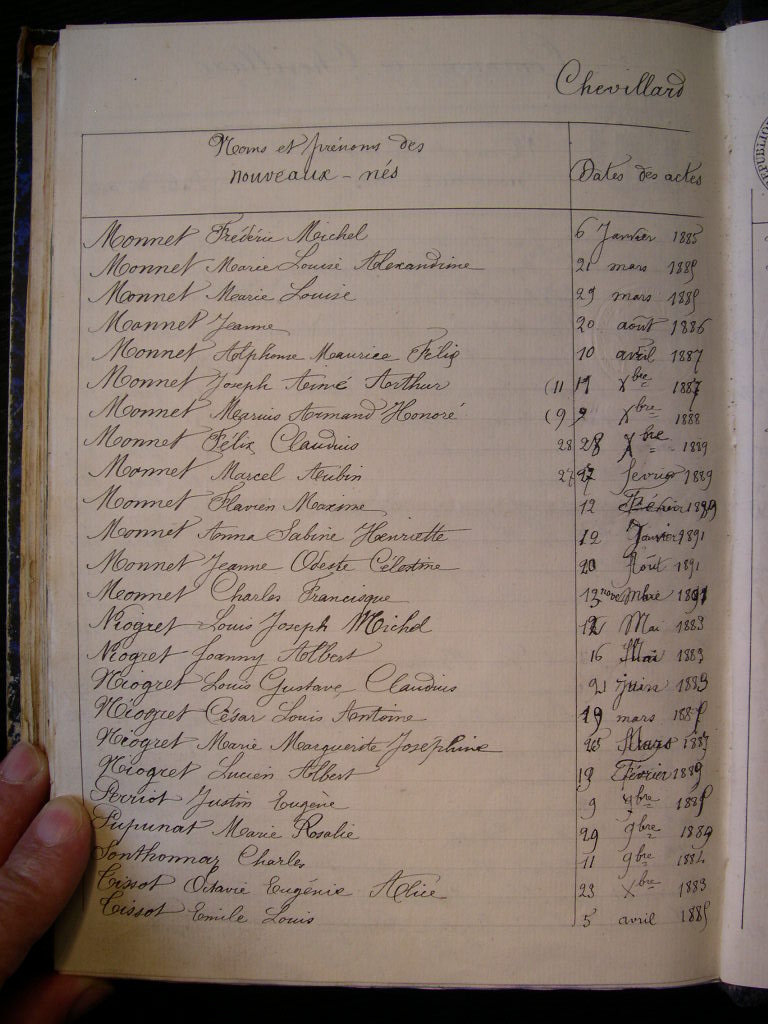 Chevillard
Noms et prénoms des
nouveaux-nés
Dates des actes
Monnet Frédéric Michel 6 Janvier 1885
Monnet Marie Louise Alexandrine 21 mars 1885
Monnet Marie Louise 29 mars 1885
Monnet Jeanne 20 août 1886
Monnet Alphonse Maurice Félix 10 avril 1887
Monnet Joseph Aimé Arthur (11 11 Xbre 1887
Monnet Marius Armand Honoré (9 9 Xbre 1888
Monnet Félix Claudius 28 28 Xbre 1889
Monnet Marcel Aubin 27 27 fevrier 1889
Monnet Flavien Maxime 12 Février
Monnet Anna Sabine Henriette 12 Janvier 1891
Monnet Jeanne Odeste Célestine 20 Août 1891
Monnet Charles Francisque 13 novembre 1891
Niogret Louis Joseph Michel 12 Mai 1883
Niogret Joanny Albert 16 Mai 1883
Niogret Louis Gustave Claudius 21 juin 1883
Niogret César Louis Antoine 19 mars
Niogret Marie Marguerite Joséphine 25 Mars
Niogret Lucien Albert 19 Février 1889
Perriot Justin Eugène 9 9bre 1885
Pupunat Marie Rosalie 29 9bre
Sonthonnax Charles 11 9bre 1884
Tissot Octavie Eugénie Alice 23 Xbre 1883
Tissot Emile Louis 5 avril 1885
RÉPUBLIQUE